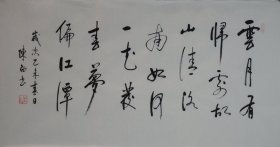 雲月有
歸處故
山清洛
南如何
一花發
春夢
徧江潭
歲次乙未春日
陳 書